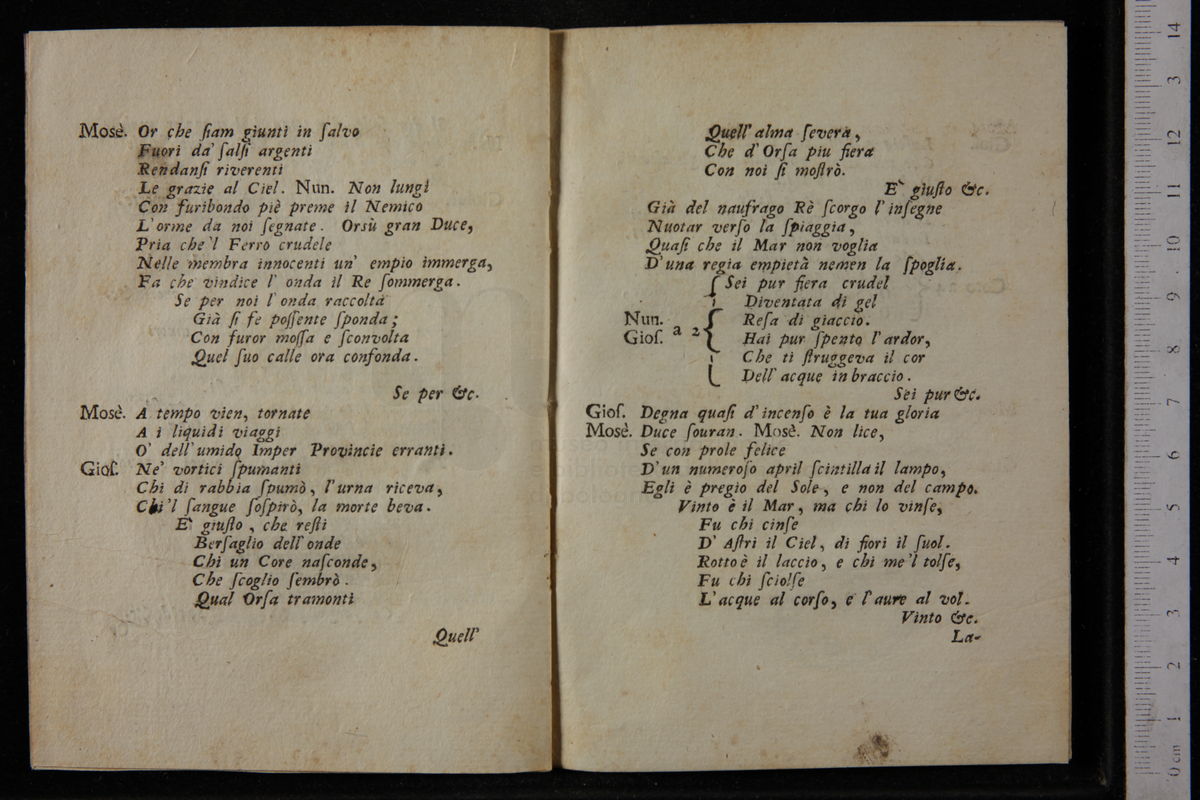 Mosè. Or che ſiam giunti in ſalvo
Fuori da' ſalſi argenti
Rendanſi riverenti
Le grazie al Ciel. Nun. Non lungi
Con furibondo piè preme il Nemico
L'orme da noi ſegnate. Orsù gran Duce,
Pria che'l Ferro crudele
Nelle membra innocenti un' empio immerga,
Fa che vindice l' onda il Re ſommerga.
Se per noi l'onda raccolta
Già ſi fe poſſente ſponda;
Con furor moſſa e ſconvolta
Quel ſuo calle ora confonda.
Se per &c.
Mosè. A tempo vien, tornate
A i liquidi viaggi
O' dell'umido Imper Provincie erranti.
Gioſ. Ne' vortici ſpumanti
Chi di rabbia ſpumò, l'urna riceva,
Chi'l ſangue ſoſpirò, la morte beva.
E' giuſto, che reſti
Berſaglio dell'onde
Chi un Core naſconde,
Che ſcoglio ſembrò.
Qual Orſa tramonti
Quell'
Quell'alma ſevera,
Che d'Orſa piu fiera
Con noi ſi moſtrò.
E' giuſto &c.
Già del naufrago Rè ſcorgo l'inſegne
Nuotar verſo la ſpiaggia,
Quaſi che il Mar non voglia
D'una regia empietà nemen la ſpoglia.
Nun. Gioſ. a 2 Sei pur fiera crudel
Diventata di gel
Reſa di giaccio.
Hai pur ſpento l'ardor,
Che ti ſtruggeva il cor
Dell'acque in braccio.
Sei pur &c.
Gioſ. Degna quaſi d'incenſo è la tua gloria
Mosè. Duce ſouran. Mosè. Non lice,
Se con prole felice
D'un numeroſo april ſcintilla il lampo,
Egli è pregio del Sole, e non del campo.
Vinto è il Mar, ma chi lo vinſe,
Fu chi cinſe
D' Aſtri il Ciel, di fiori il ſuol.
Rotto è il laccio, e chi me'l tolſe,
Fu chi ſciolſe
L'acque al corſo, e l'aure al vol.
Vinto &c.
La-
0 cm 1 2 3 4 5 6 7 8 9 10 11 12 3 14